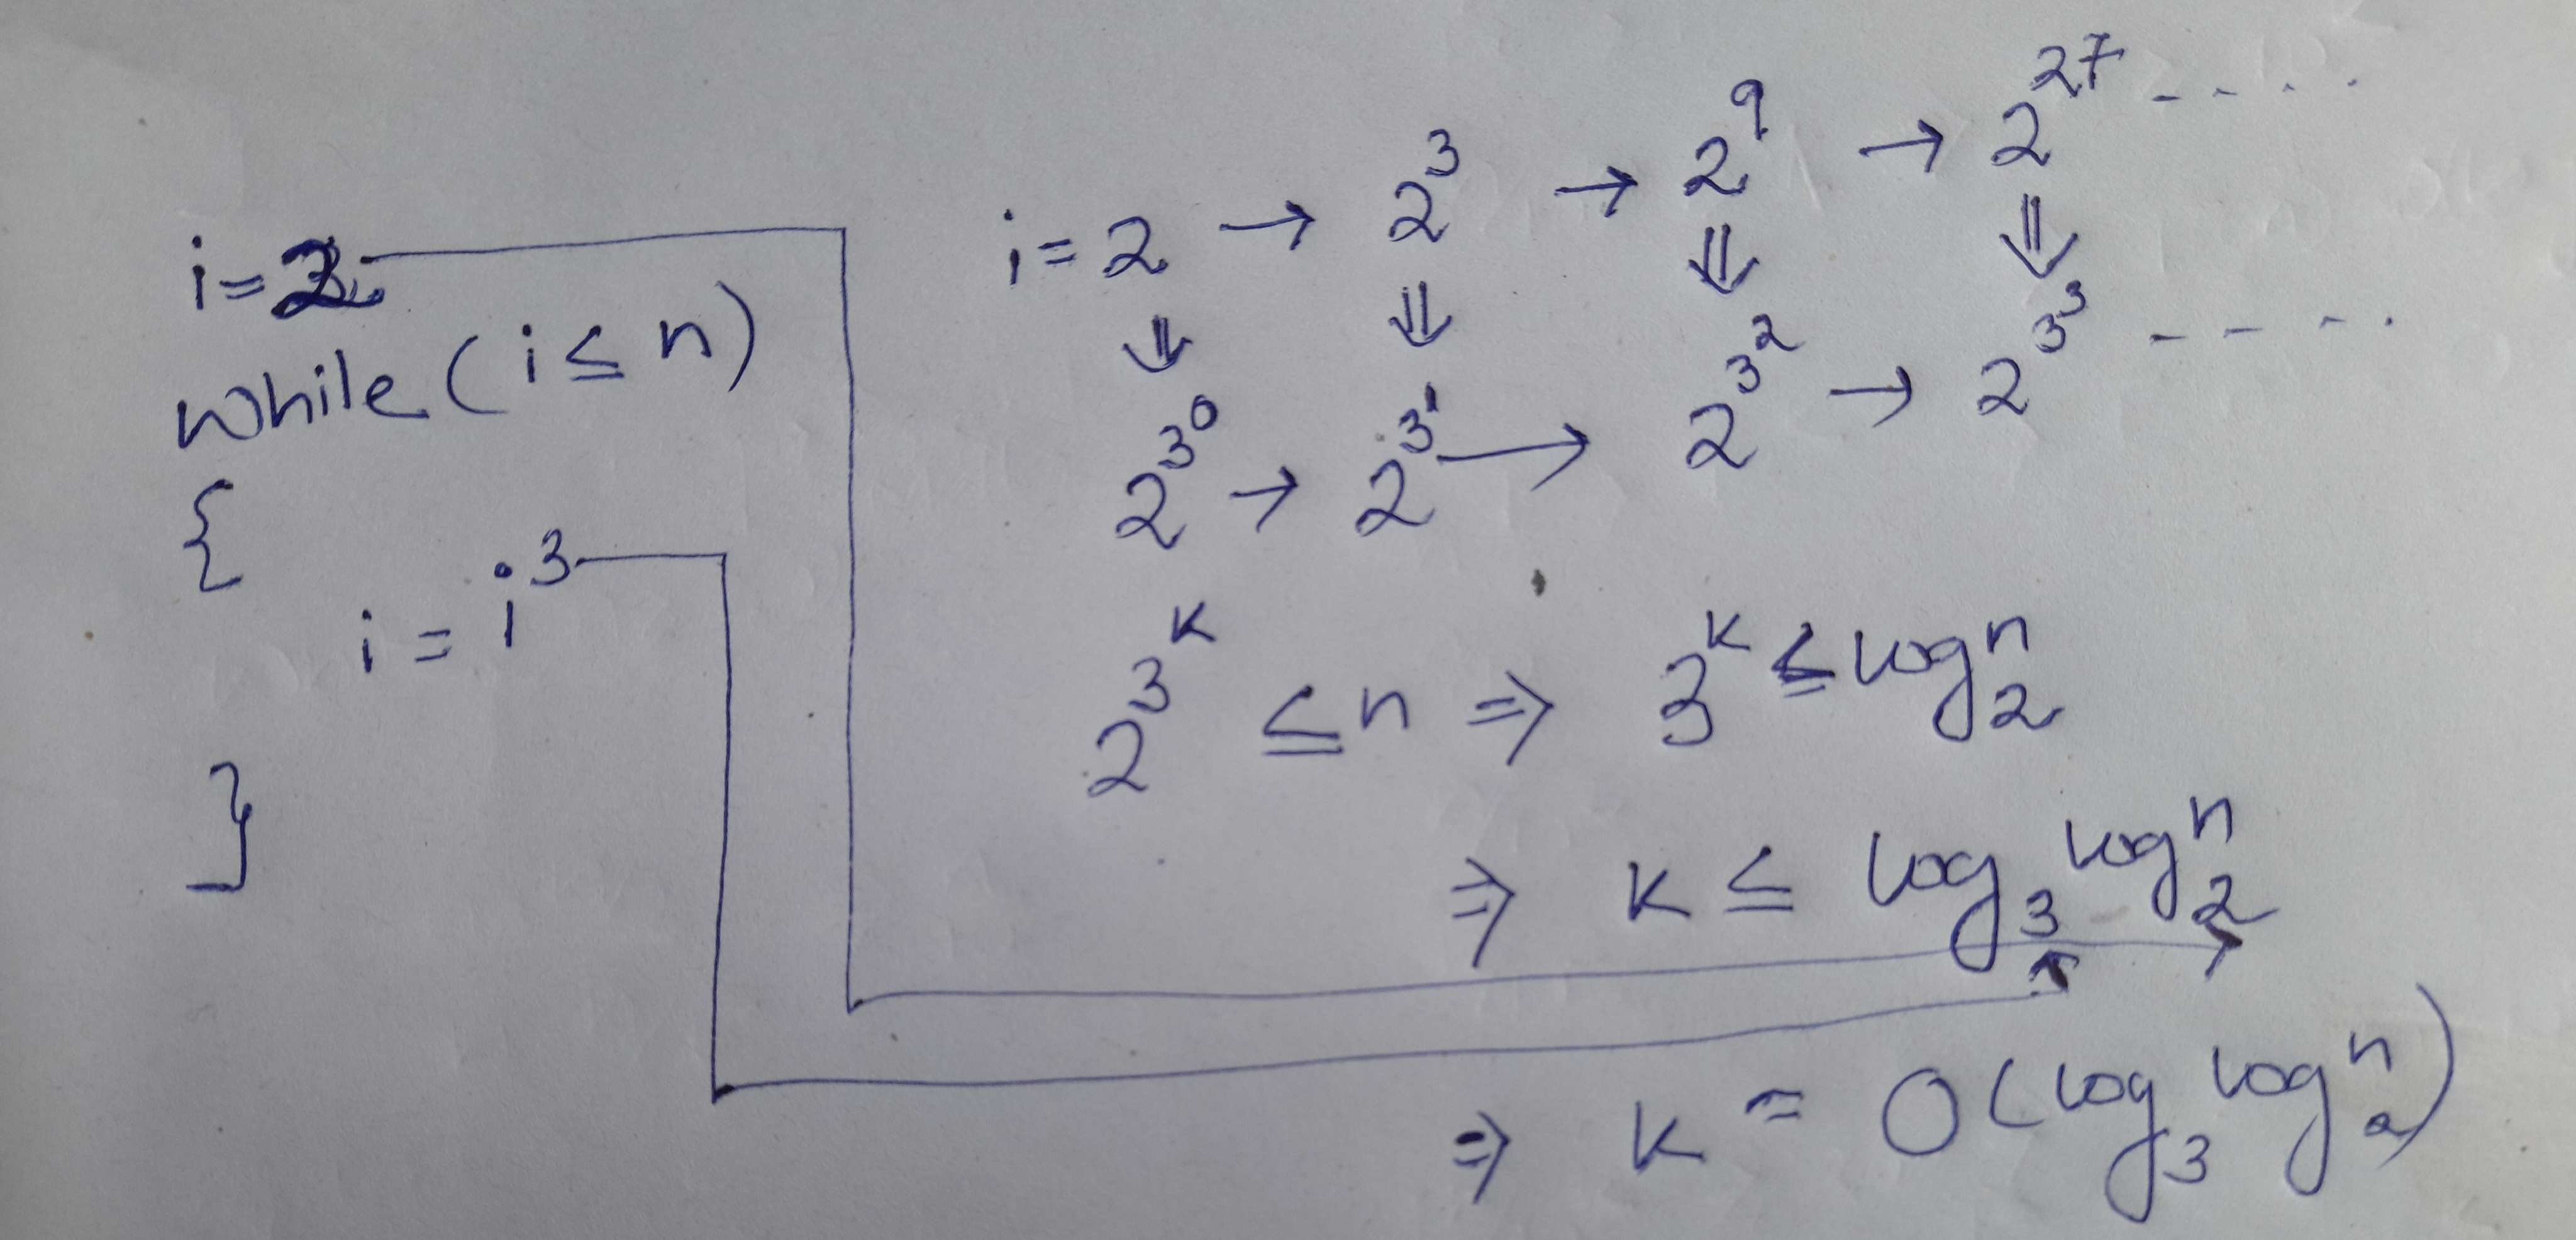 i=2
while(i≤n)
{
i = i³
}
i=2 → 2³ → 2⁹ → 2²⁷ ----
⇓ ⇓ ⇓ ⇓
2^3^0 → 2^3^1 → 2^3^2 → 2^3^3 ----
2^3^k ≤ n ⇒ 3^k ≤ log₂ⁿ
⇒ k ≤ log₃ log₂ⁿ
⇒ k = O(log₃ log₂ⁿ)